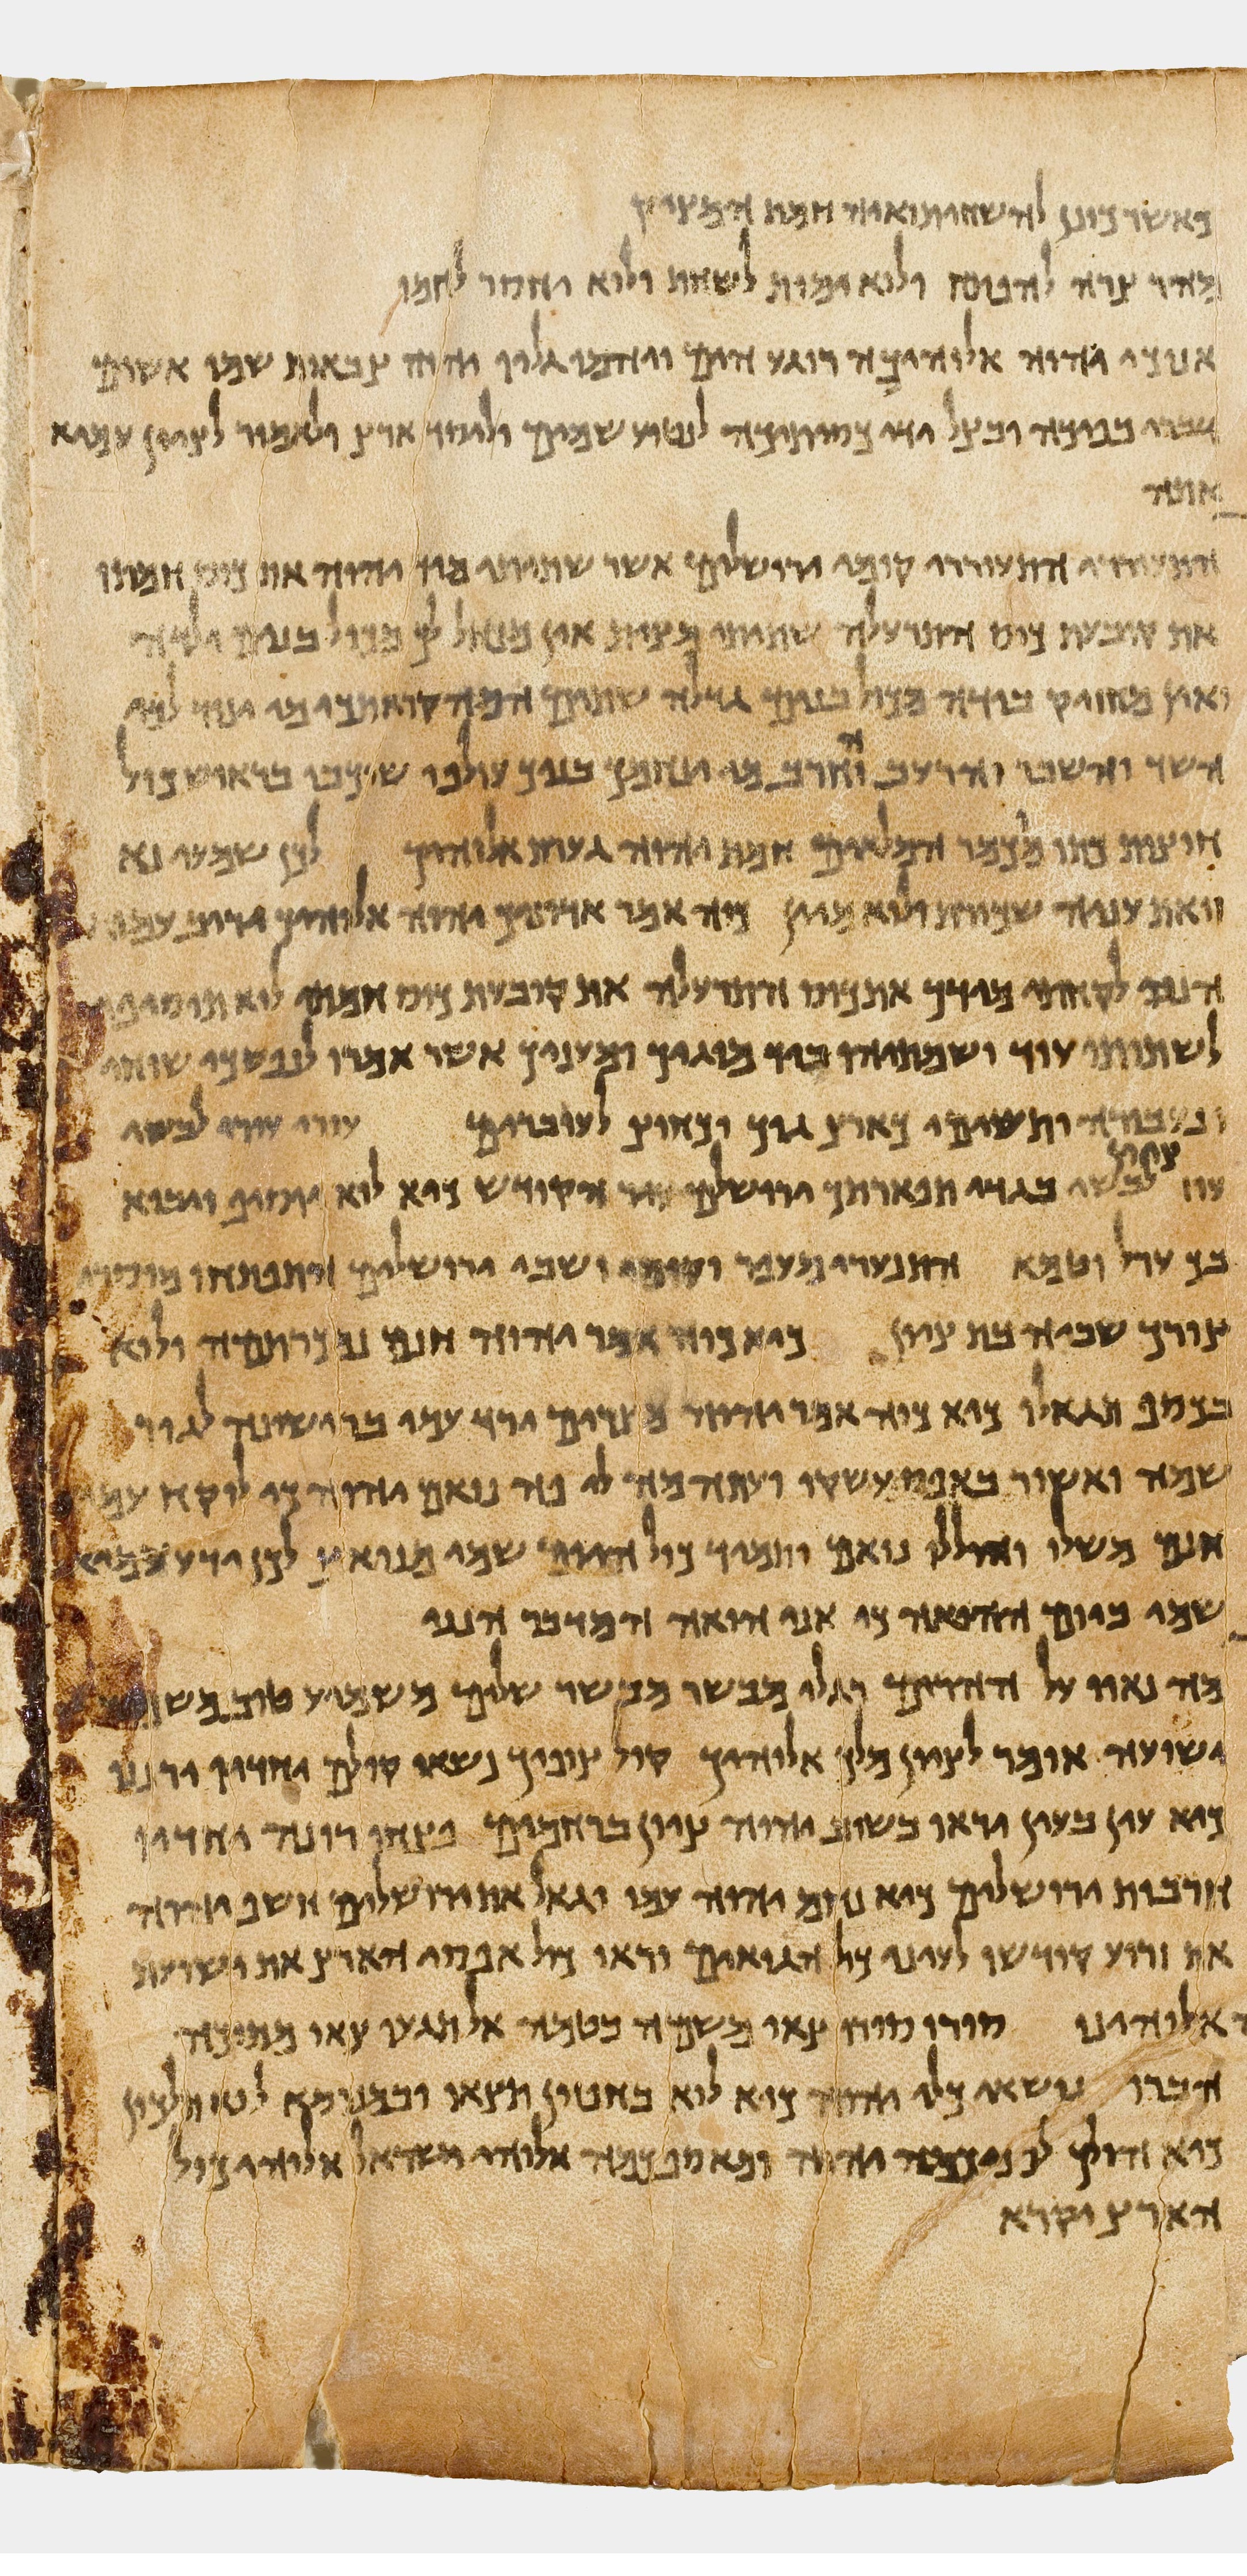 כאשר כונן להשחית ואיה חמת המציק
מהר צרה להפתח ולוא ימות לשחת ולוא יחסר לחמו
אנוכי יהוה אלוהיכה רוגע הים ויהמו גליו יהוה צבאות שמו אשים
דברי בפיכה ובצל ידי כסיתיכה לנטוע שמים וליסד ארץ ולאמור לציון עמי א
אתה
התעוררי התעוררי קומי ירושלים אשר שתיתי מיד יהוה את כוס חמתו
את קובעת כוס התרעלה שתיתי מצית אין מנהל לך מכול בנים ילדה
ואין מחזיק בידה מכול בנים גדלה שתים המה קוראתיך מי ינוד לך
השד והשבר והרעב והחרב מי ינחמך בניך עולפו שכבו בראוש כול
חוצות כתו מכמר המלאים חמת יהוה גערת אלוהיך לכן שמעי נא
זואת עניה שכורת ולוא מיין כוה אמר אדוניך יהוה אלוהיך יריב עמו
הנה לקחתי מידך את כוס התרעלה את קובעת כוס חמתי לוא תוסיפי
לשתותה עוד ושמתיהו ביד מוגיך ומעניך אשר אמרו לנפשכי שוחי
ונעבורה ותשימי כארץ גוך וכחוץ לעוברים עורי עורי לבשי
עוז ציון לבשי בגדי תפארתך ירושלים עיר הקודש כיא לוא יוסיף ויבוא
בך ערל וטמא התנערי מעפר וקומי ושבי ירושלים והתפתחו מוסרי
צורך שביה בת ציון כיא כוה אמר יהוה חנם נמכרתמה ולוא
בכסף תגאלו כיא כוה אמר יהוה מצרים ירד עמי ברישונה לגור
שמה ואשור באפס עשקו ועתה מה לי פה נואם יהוה כי לוקח עמי
חנם משלו והוללו נואם יהוה ותמיד כול היום שמי מנואץ לכן ידע עמי
שמי ביום ההואה כי אני הואה המדבר הנני
מה נאוו על ההרים רגלי מבשר מבשר שלום משמיע טוב משמיע
ישועה אומר לציון מלך אלוהיך קול צופיך נשאו קולם יחדיו ירננו
כיא עין בעין יראו בשוב יהוה ציון ברחמים פצחו רונה יחדיו
חורבות ירושלים כיא נחם יהוה עמו וגאל את ירושלים חשף יהוה
את זרוע קודשו לעיני כול הגואים וראו כול אפסי הארץ את ישועת
אלוהינו סורו סורו צאו משמה בטמה אל תגעו צאו מתוכה
הברו נושאי כלי יהוה כיא לוא בחפזון תצאו ובמנוסה לוא תלכון
כיא הולך לפניכמה יהוה ומאספכמה אלוהי ישראל אלוהי כול
הארץ יקרא